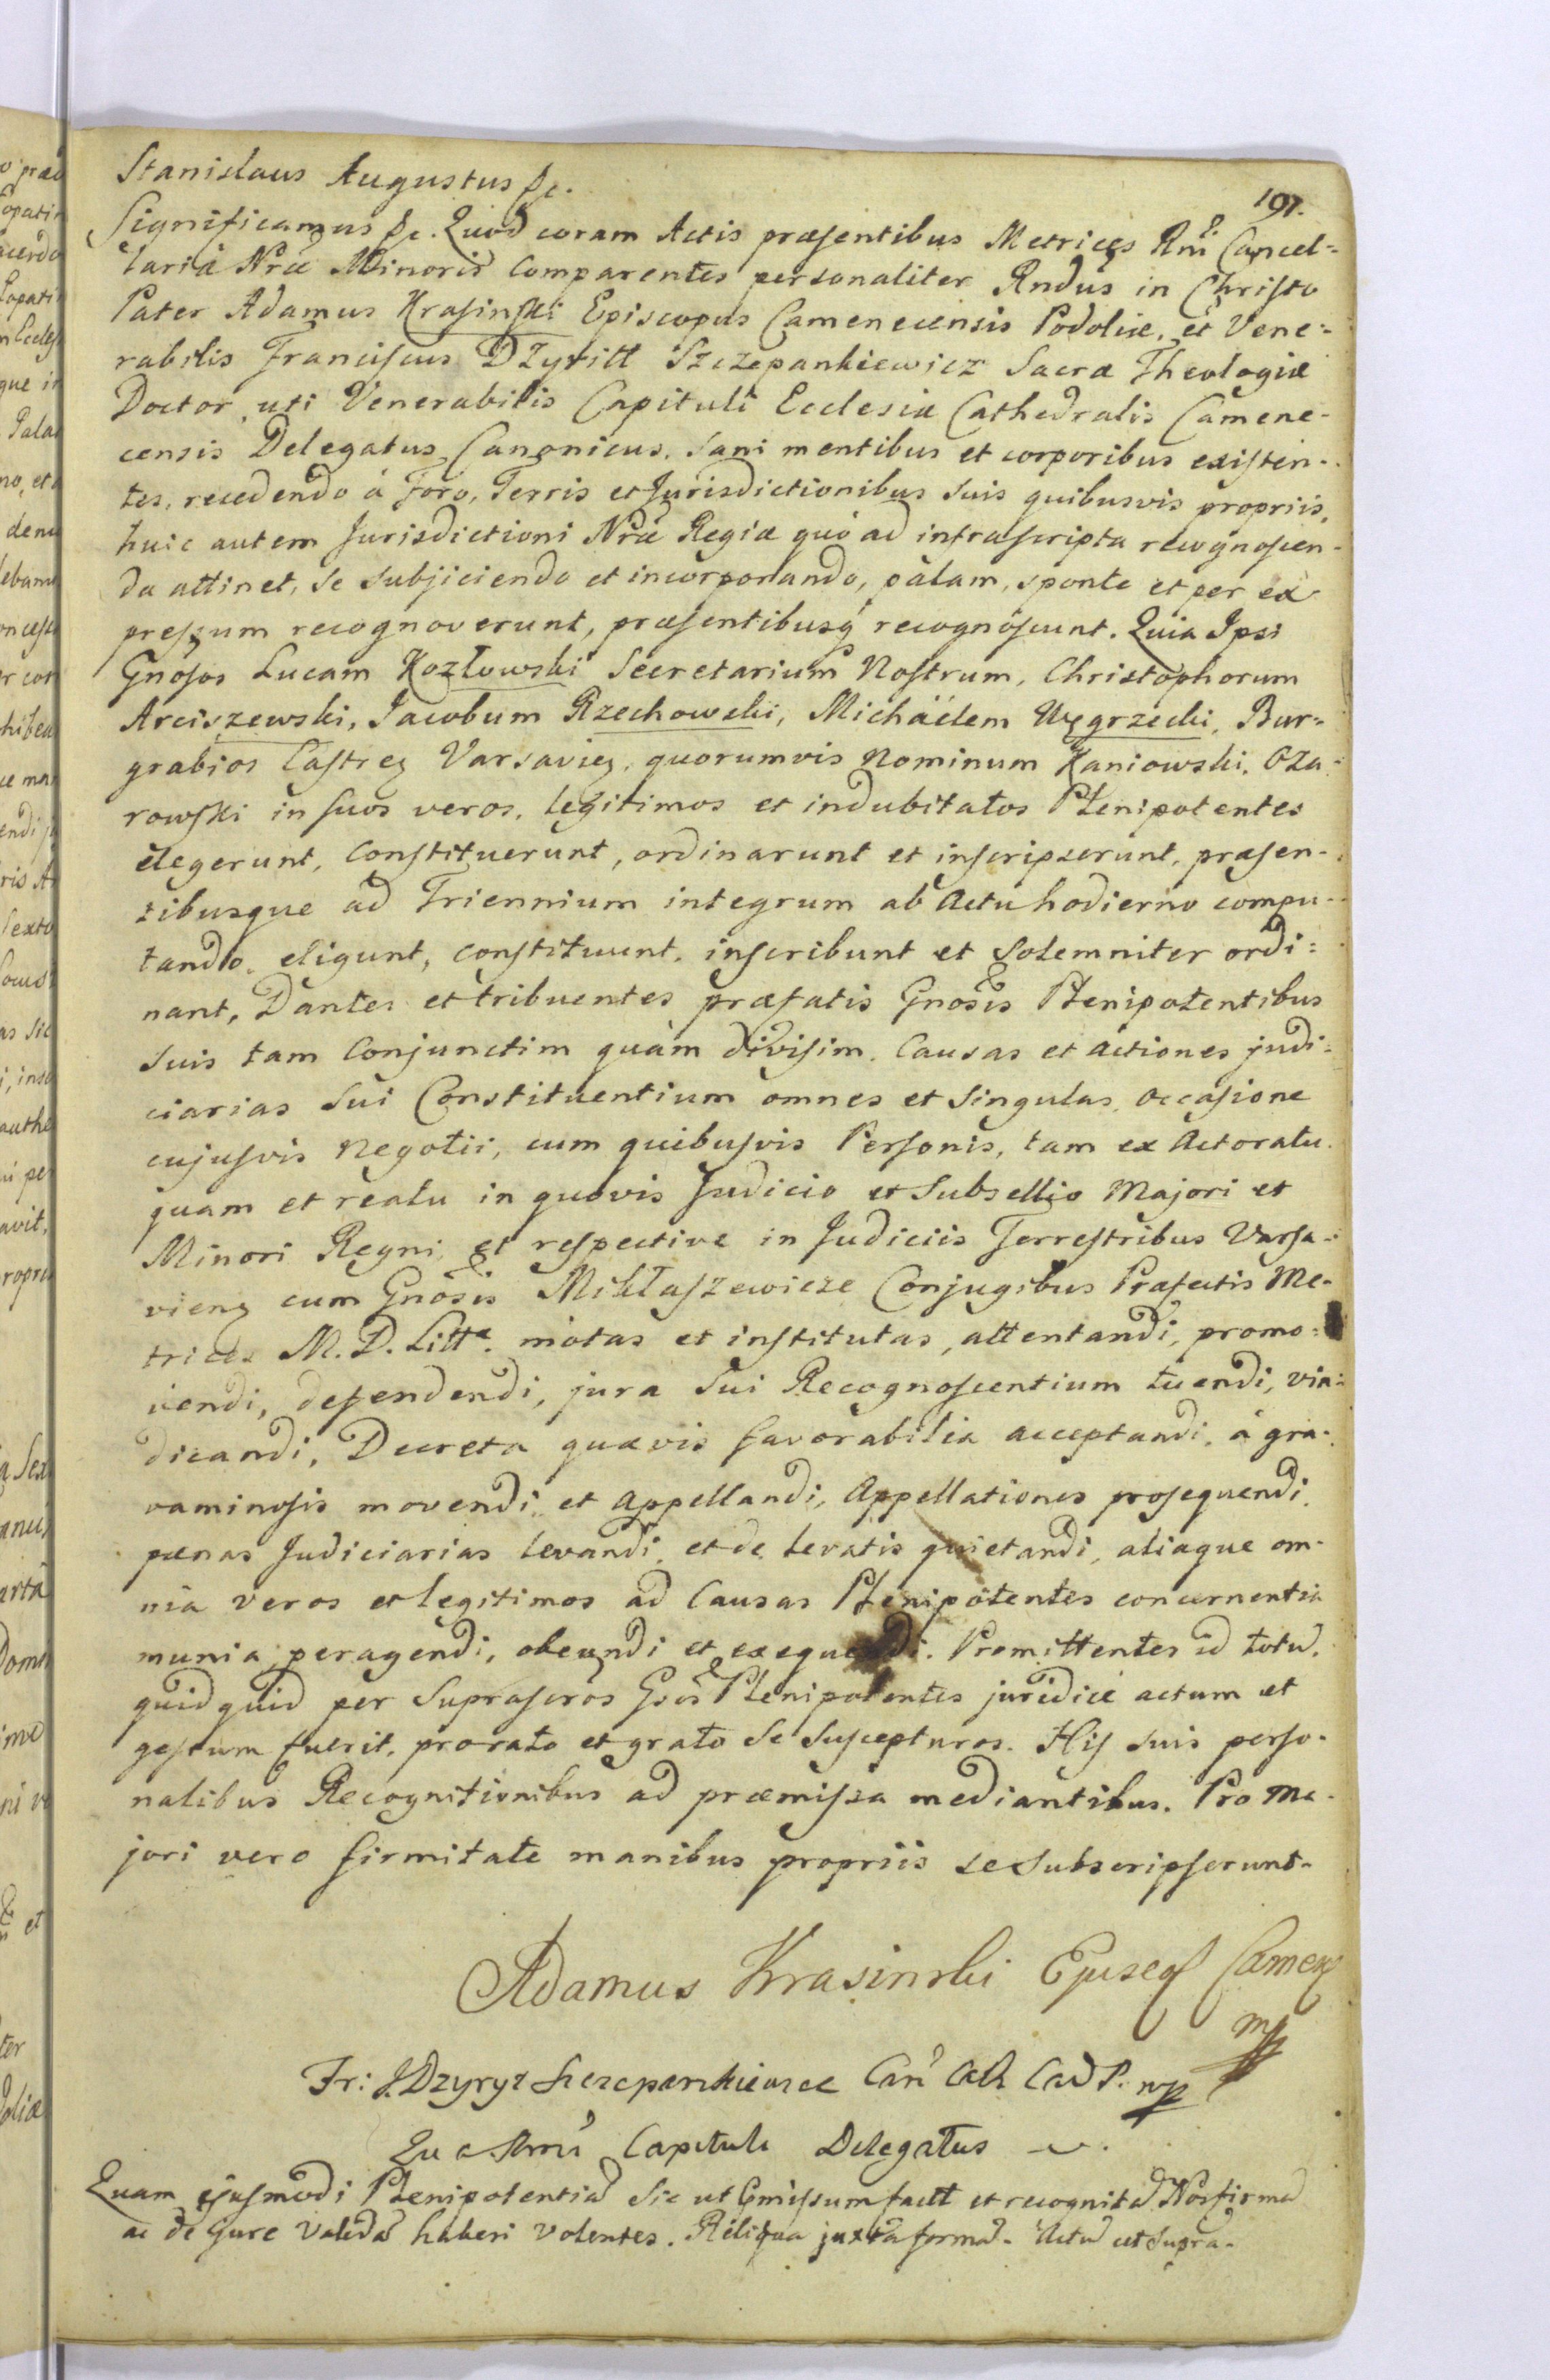 Stanislaus Augustus &c.
197.
Significamus &c. Quod coram Actis præsentibus Metrices Rni Cancel=
lariæ Nræ Minoris Comparentes personaliter Rndus in Christo
Pater Adamus Krasinski Episcopus Camenecensis Podoliæ, et Vene=
rabilis Franciscus Szczepankiewicz Sacræ Theologiæ
Doctor uti Venerabilis Capituli Ecclesiæ Cathedralis Camene-
censis Delegatus, Canonicus. Sani mentibus et corporibus existen-
tes, recedendo à Foro, Terris et Jurisdictionibus suis quibusvis propriis,
huic autem Jurisdictioni Nræ Regiæ quò ad infrascripta recognoscen-
da attinet, se subjiciendo et incorporando, palam, sponte et per ex
pressum recognoverunt, præsentibusq recognoscunt. Quia Ipsi
Gnosos Lucam Kozłowski Secretarium Nostrum, Christophorum
Arciszewski, Jacobum Rzechowski, Michaëlem Węgrzecki, Bur=
grabios Castren Varsavien, quorumvis Nominum Kaniowski, Oza=
rowski in suos veros, legitimos et indubitatos Plenipotentes
elegerunt, constituerunt, ordinarunt et inscripserunt, præsen-
tibusque ad Triennium integrum ab Actu hodierno compu-
tando, eligunt, constituunt, inscribunt et Solemniter ordi=
nant, Dantes et tribuentes præfatis Gnosis Plenipotentibus
suis tam Conjunctim quàm divisim, Causas et actiones judi=
ciarias Sui Constituentium omnes et Singulas, occasione
cujusvis Negotii, cum quibusvis Personis, tam ex Actoratu
quam et reatu in quovis Judicio et Subsellio Majori et
Minori Regni, et respective in Judiciis Terrestribus Varsa=
vien cum Gnosis Mikłaszewicze Conjugibus Præfectis Me-
trices M. D. Littæ. motas et institutas, attentandi, promo=
vendi, defendendi, jura Sui Recognoscentium tuendi, vin=
dicandi, Decreta quævis favorabilia acceptandi, à gra-
vaminosis movendi et appellandi, Appellationes prosequendi,
pænas Judiciarias levandi, et de levatis quietandi, aliaque om-
nia veros et legitimos ad Causas Plenipotentes concernentia
munia peragendi, obeundi et exequendi. Promittentes id totu,
quidquid per Suprascros Gsos Plenipotentes juridicè actum et
gestum fuerit, pro rato et grato Se Suscepturos. His suis perso-
nalibus Recognitionibus ad præmissa mediantibus. Pro Ma-
jori vero firmitate manibus propriis se subscripserunt.
Adamus Krasinski Camen
mp
Fr: Can Cad P. mp
Capituli Delegatus
Quam ejusmodi Plenipotentia Sic ut et recognita Nos firma
ac de jure valida haberi Volentes. Reliqua juxta forma. Actu ut Supra.